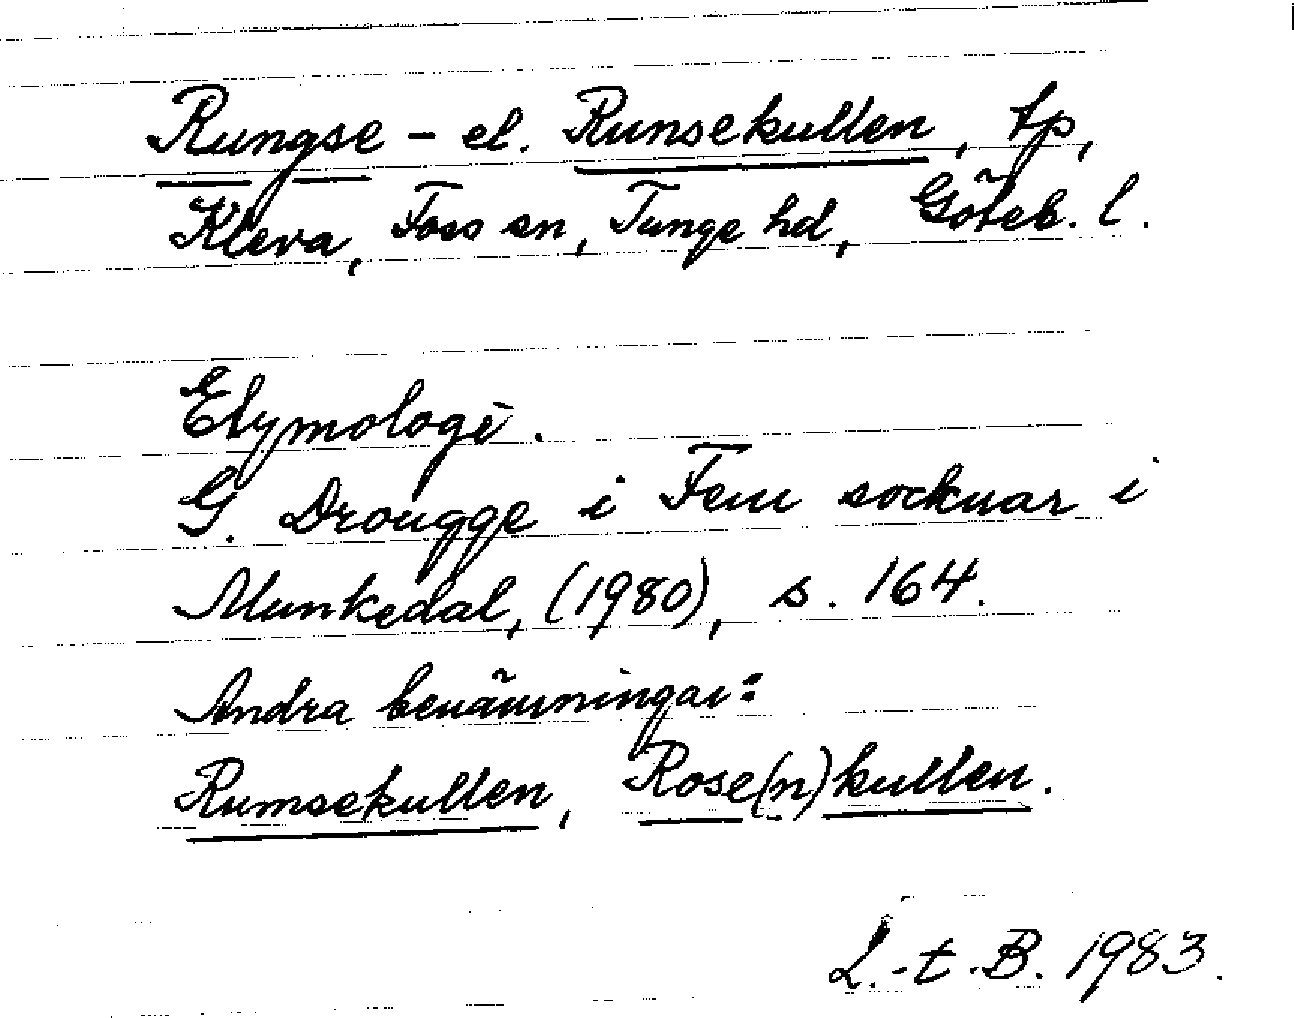 Rungse- el. Runsekullen, tp,
Kleva, Foss sn, Tunge hd, Göteb. l.
Etymologi.
G. Drougge i Fem socknar i
Munkedal, (1980), s. 164.
Andra benämningar:
Rumsekullen, Rose(n)kullen.
L.-t. B. 1983.